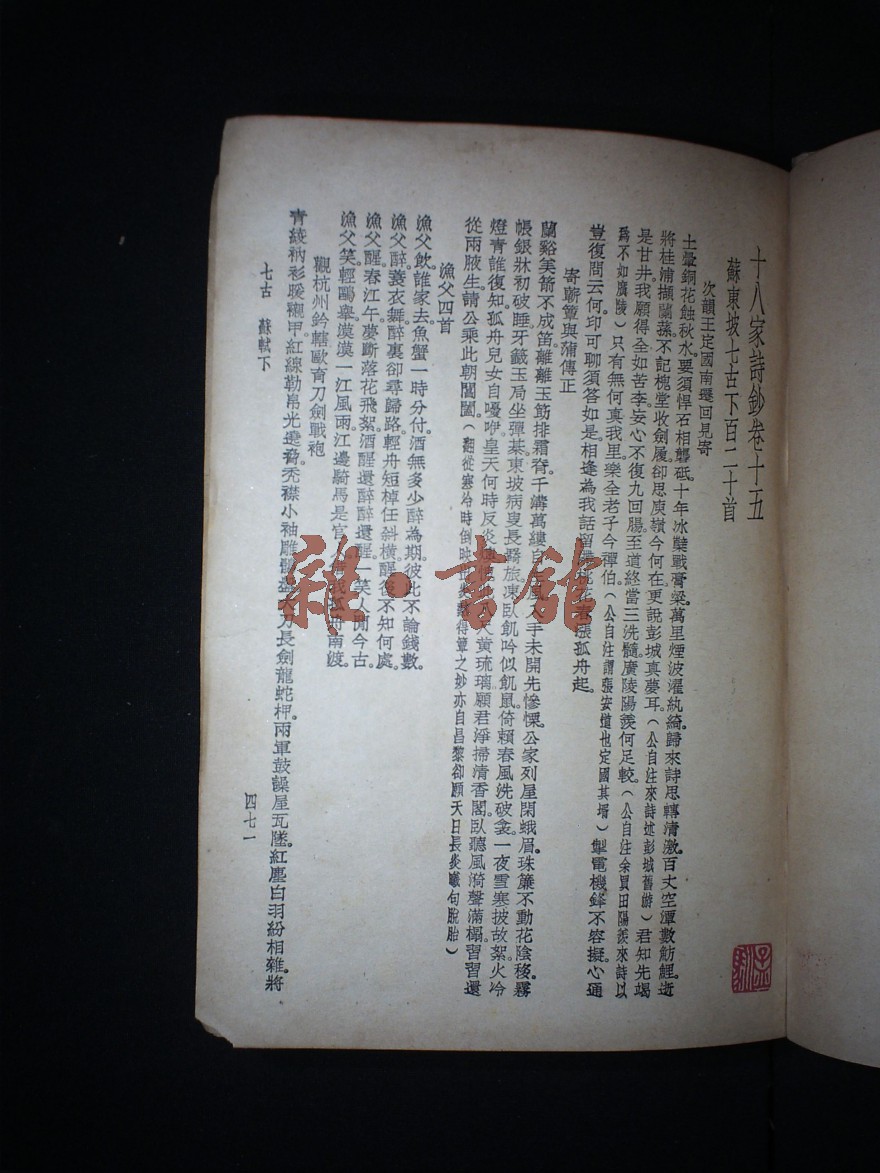 十八家詩鈔卷十五
蘇東坡七古下百二十首
次韻王定國南遷回見寄
土暈銅花蝕秋水。要須悍石相礱砥。十年冰檗戰膏粱。萬里煙波濯紈綺。歸來詩思轉清激。百丈空潭數魴鯉。逝
將桂浦擷蘭蓀。不記槐堂收劍履。卻思庾嶺今何在。更說彭城真夢耳。(公自注來詩述彭城舊游)君知先竭
是甘井。我願得全如苦李。妄心不復九回腸。至道終當三洗髓。廣陵陽羨何足較。(公自注余買田陽羨來詩以
為不如廣陵)只有無何真我里。樂全老子今禪伯。(公自注謂張安道也定國其壻)掣電機鋒不容擬。心通
豈復問云何。印可聊須答如是。相逢為我話留滯。桃花春漲孤舟起。
寄蘄簟與蒲傳正
蘭谿美箭不成笛。離離玉筯排霜脊。千溝萬縷自生風。入手未開先慘慄。公家列屋閑蛾眉。珠簾不動花陰移。霧
帳銀牀初破睡。牙籤玉局坐彈棊。東坡病叟長羈旅。凍臥飢吟似飢鼠。倚賴春風洗破衾。一夜雪寒披故絮。火冷
燈青誰復知。孤舟兒女自嚘咿。皇天何時反炎
八尺黃琉璃。願君淨掃清香閣。臥聽風漪聲滿榻。習習還
從兩腋生。請公乘此朝閶闔。(翻從寒冷時倒
得簟之妙亦自昌黎卻願天日長炎曦句脫胎)
漁父四首
漁父飲。誰家去。魚蟹一時分付。酒無多少醉為期。彼此不論錢數。
漁父醉。蓑衣舞。醉裏卻尋歸路。輕舟短棹任斜橫。醒後不知何處。
漁父醒。春江午。夢斷落花飛絮。酒醒還醉醉還醒。一笑人間今古。
漁父笑。輕鷗舉。漠漠一江風雨。江邊騎馬是官人。借我孤舟南渡。
觀杭州鈐轄歐育刀劍戰袍
青綾衲衫暖襯甲。紅線勒帛光遶脅。禿襟小袖雕鶻盤。大刀長劍龍蛇柙。兩軍鼓譟屋瓦墜。紅塵白羽紛相雜。將
七古 蘇軾下
四七一
雜·書館